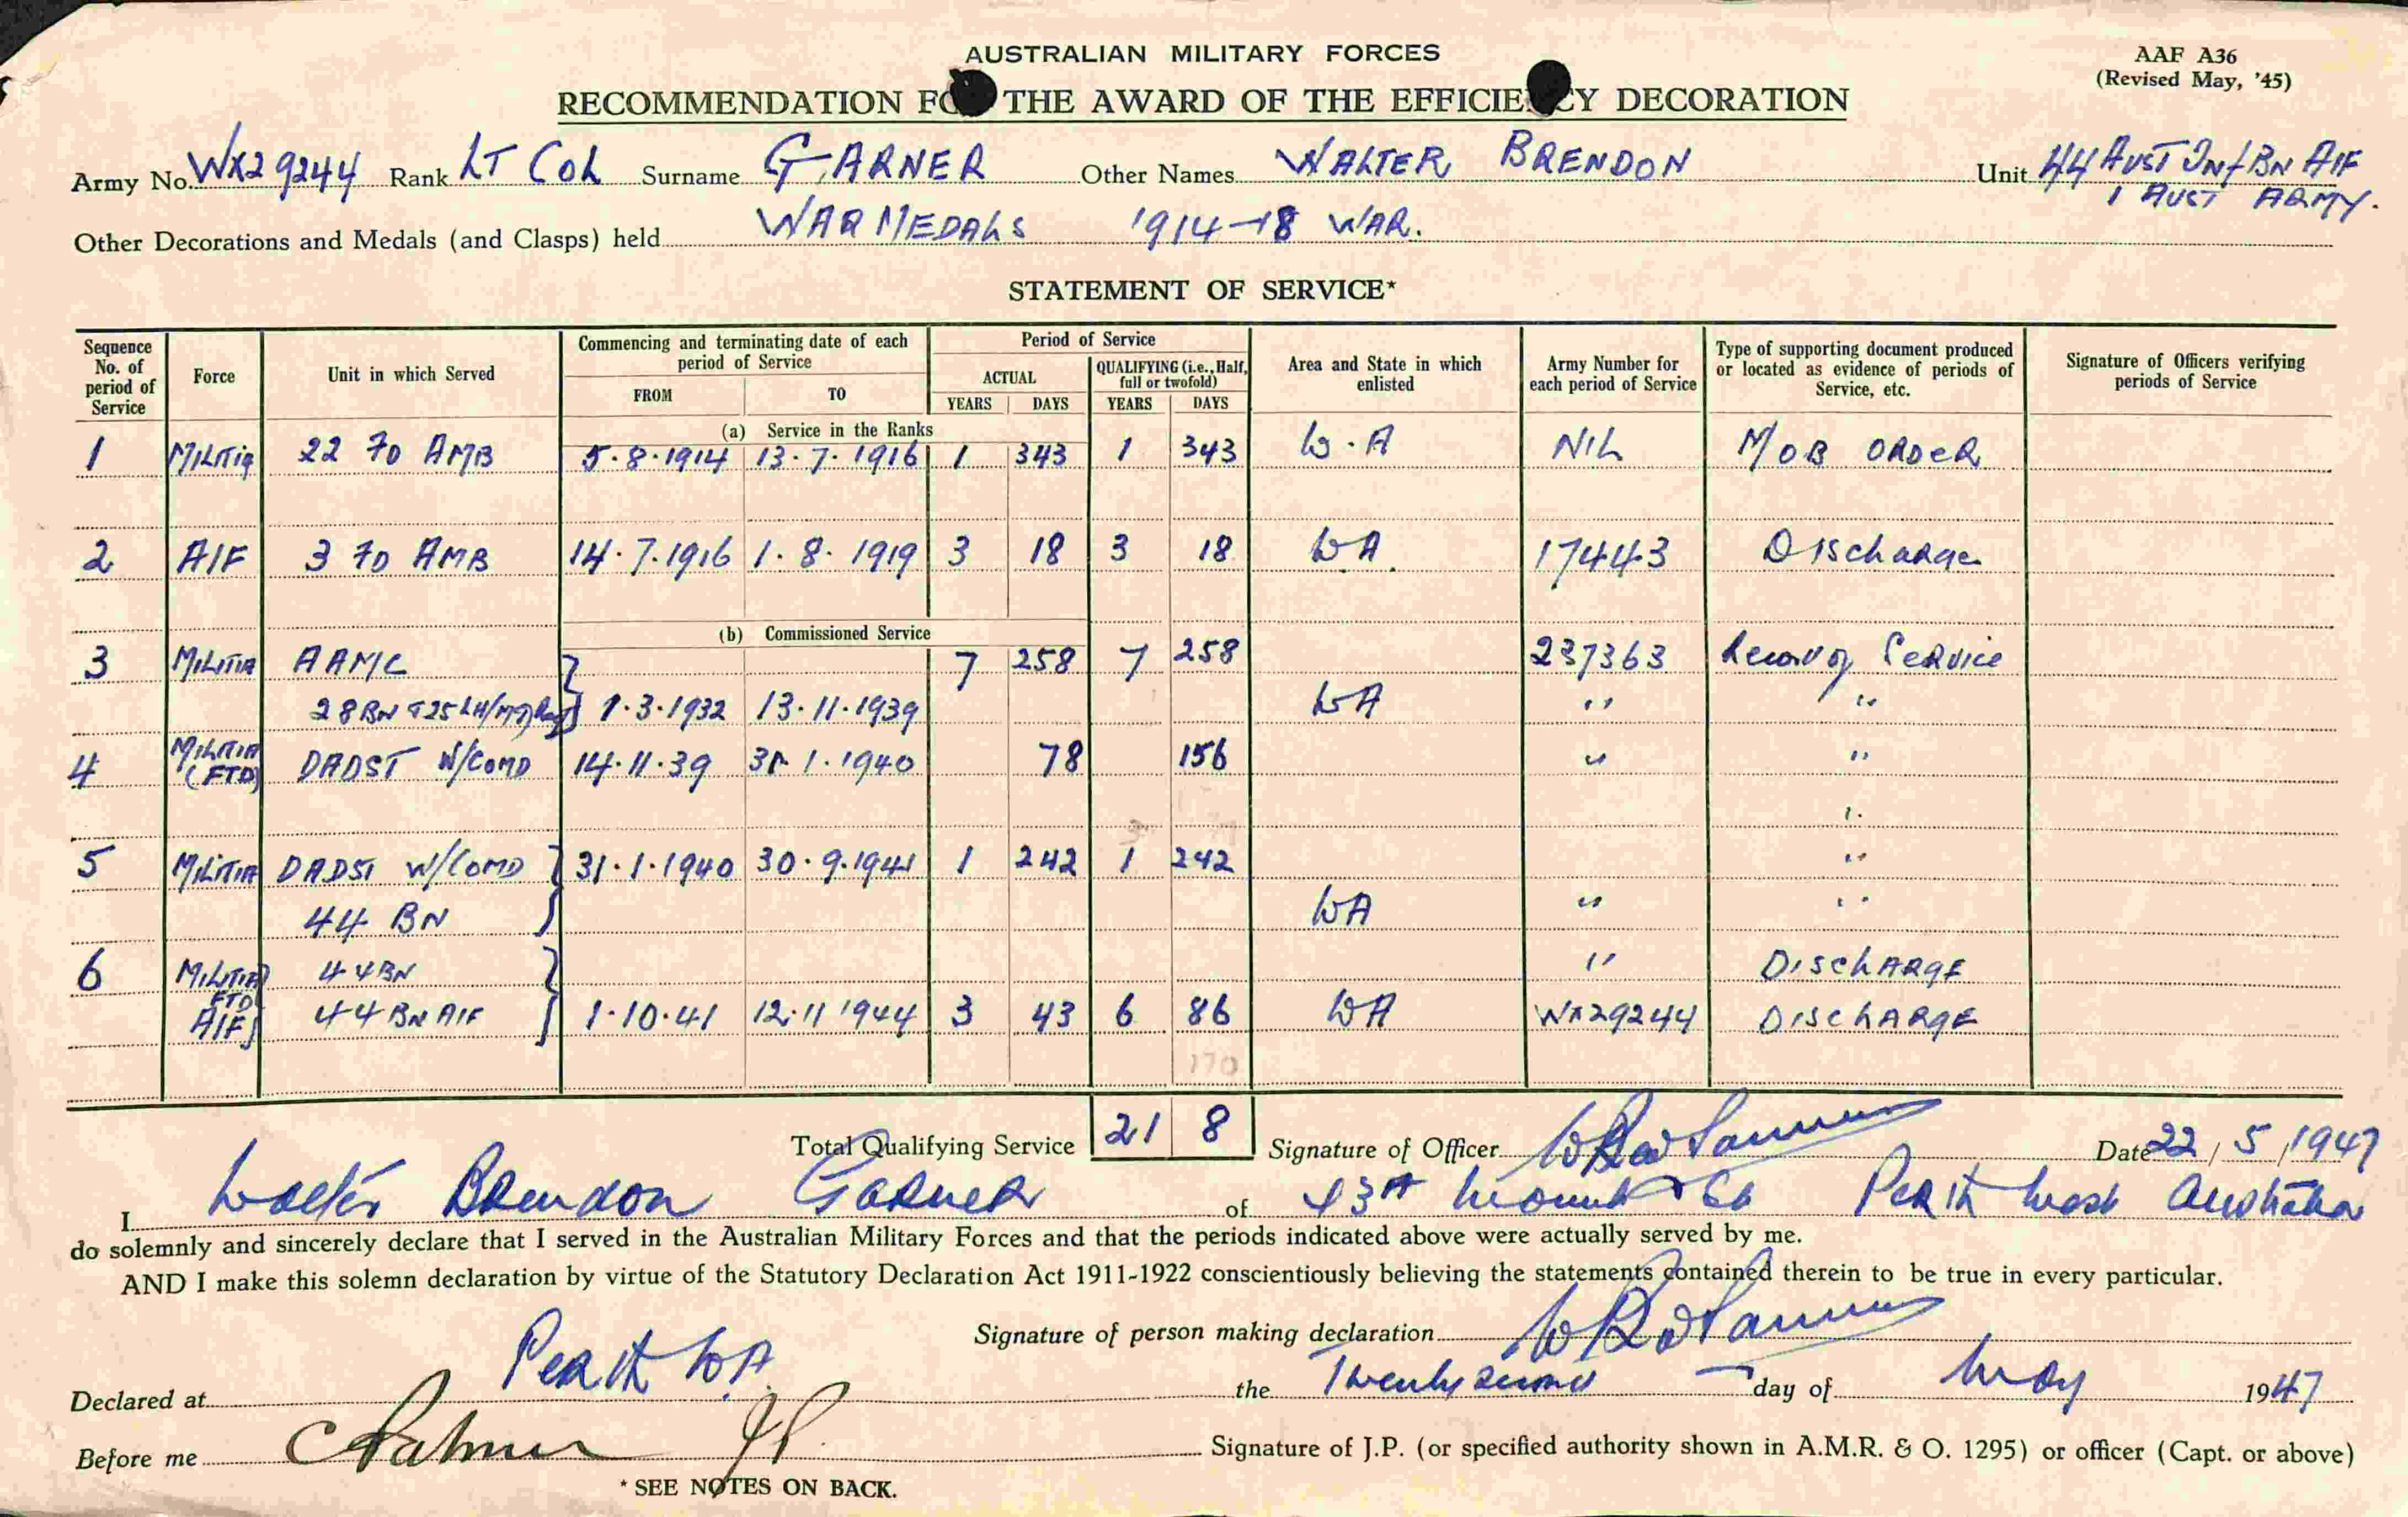 AUSTRALIAN MILITARY FORCES
AAF A36
(Revised May, '45)
RECOMMENDATION FO THE AWARD OF THE EFFICIE CY DECORATION
Army No. WX29244 Rank LT COL Surname GARNER Other Names WALTER BRENDON Unit 44 AUST INf BN AIF
1 AUST ARMY.
Other Decorations and Medals (and Clasps) held WAR MEDALS 1914-18 WAR.
STATEMENT OF SERVICE*
Sequence No. of period of Service Force Unit in which Served Commencing and terminating date of each period of Service FROM TO Period of Service ACTUAL YEARS DAYS QUALIFYING (i.e., Half, full or twofold) YEARS DAYS Area and State in which enlisted Army Number for each period of Service Type of supporting document produced or located as evidence of periods of Service, etc. Signature of Officers verifying periods of Service
(a) Service in the Ranks
1 MILITIA 22 FD AMB 5.8.1914 13.7.1916 1 343 1 343 W.A NIL MOB ORDER
2 AIF 3 FD AMB 14.7.1916 1.8.1919 3 18 3 18 WA. 17443 Discharge
(b) Commissioned Service
3 MILITIA AAMC 7 258 7 258 237363 Record of Service
28 BN & 25 LH/MG) Reg 1.3.1932 13.11.1939 WA " "
4 MILITIA (FTD) DADST W/COMD 14.11.39 31.1.1940 78 156 " "
"
5 MILITIA DADST W/COMD 31.1.1940 30.9.1941 1 242 1 242 "
44 BN WA " "
6 MILITIA FTD 44 BN " DISCHARGE
AIF 44 BN AIF 1.10.41 12.11 1944 3 43 6 86 WA WX29244 DISCHARGE
170
Total Qualifying Service 21 8 Signature of Officer Date 22/5/1947
I Walter Brendon Garner of 43A Mount St Perth West Australia
do solemnly and sincerely declare that I served in the Australian Military Forces and that the periods indicated above were actually served by me.
AND I make this solemn declaration by virtue of the Statutory Declaration Act 1911-1922 conscientiously believing the statements contained therein to be true in every particular.
Signature of person making declaration
Declared at Perth W.A. the Twenty second day of May 1947
Before me JP. Signature of J.P. (or specified authority shown in A.M.R. & O. 1295) or officer (Capt. or above)
* SEE NOTES ON BACK.